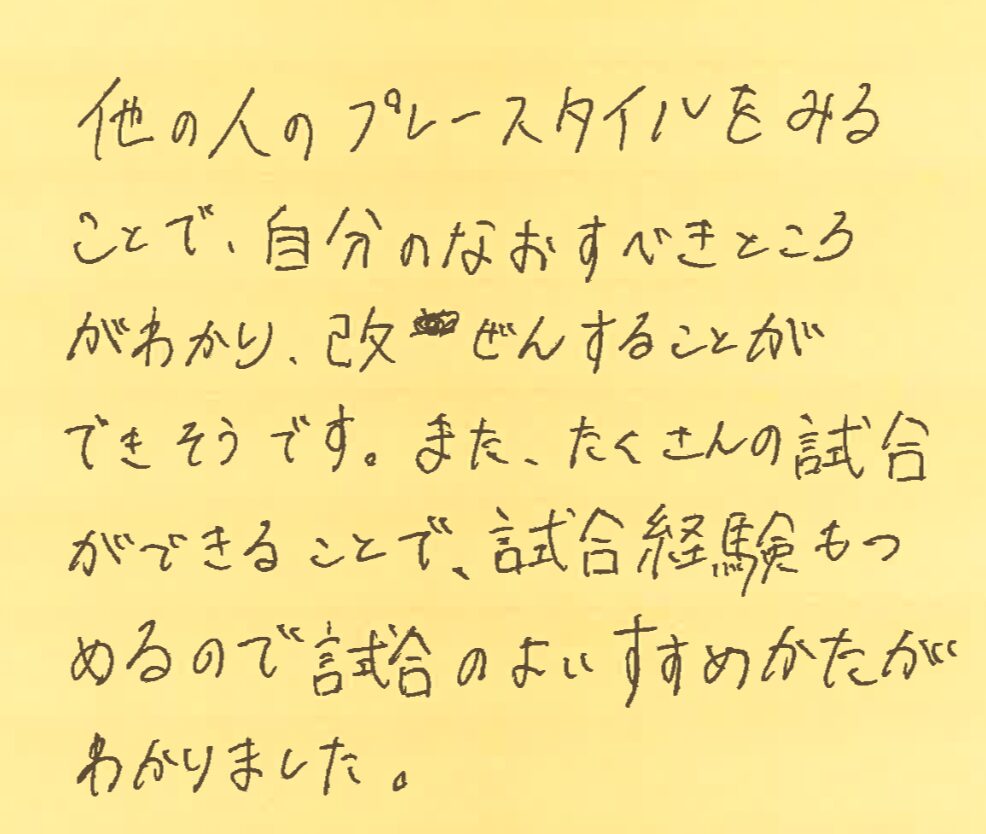 他の人のプレースタイルをみる
ことで、自分のなおすべきところ
がわかり、改ぜんすることが
できそうです。また、たくさんの試合
ができることで、試合経験もつ
めるので試合のよいすすめかたが
わかりました。